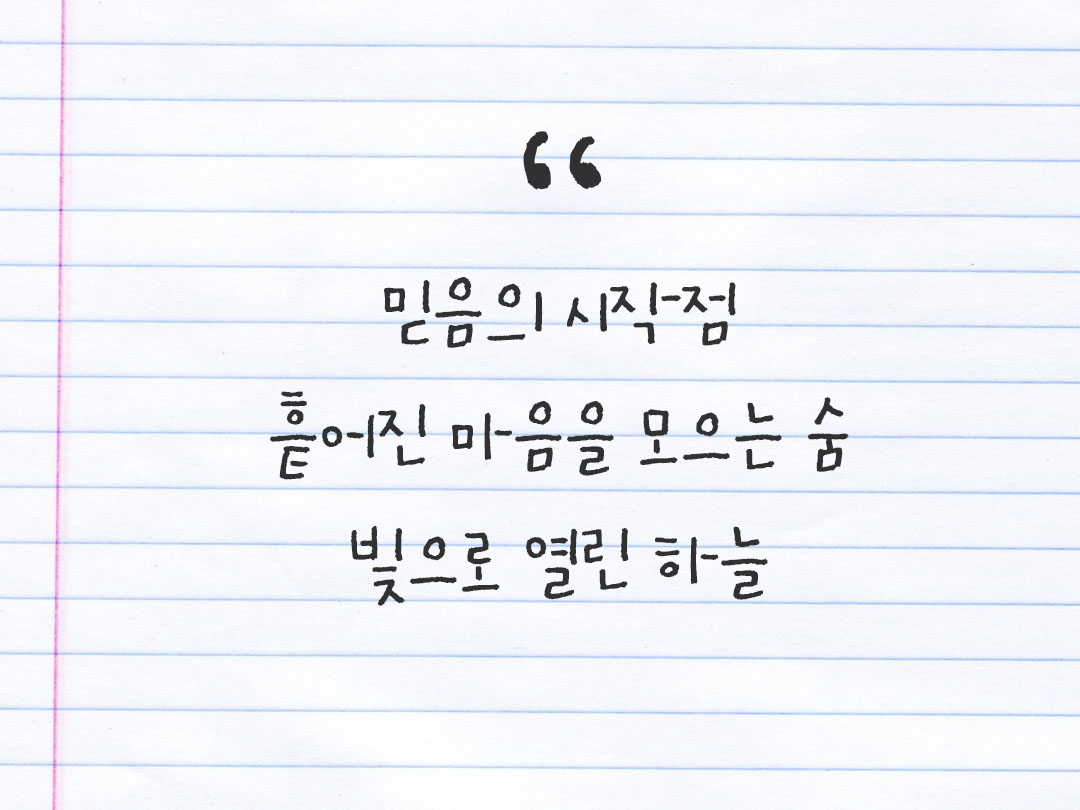 “
믿음의 시작점
흩어진 마음을 모으는 숨
빛으로 열린 하늘